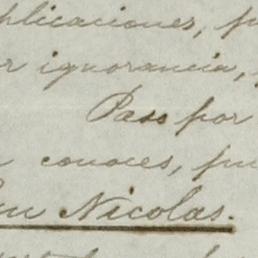 plicaciones, p
r ignorancia,
Paso por
conoces, pu
Nicolas.